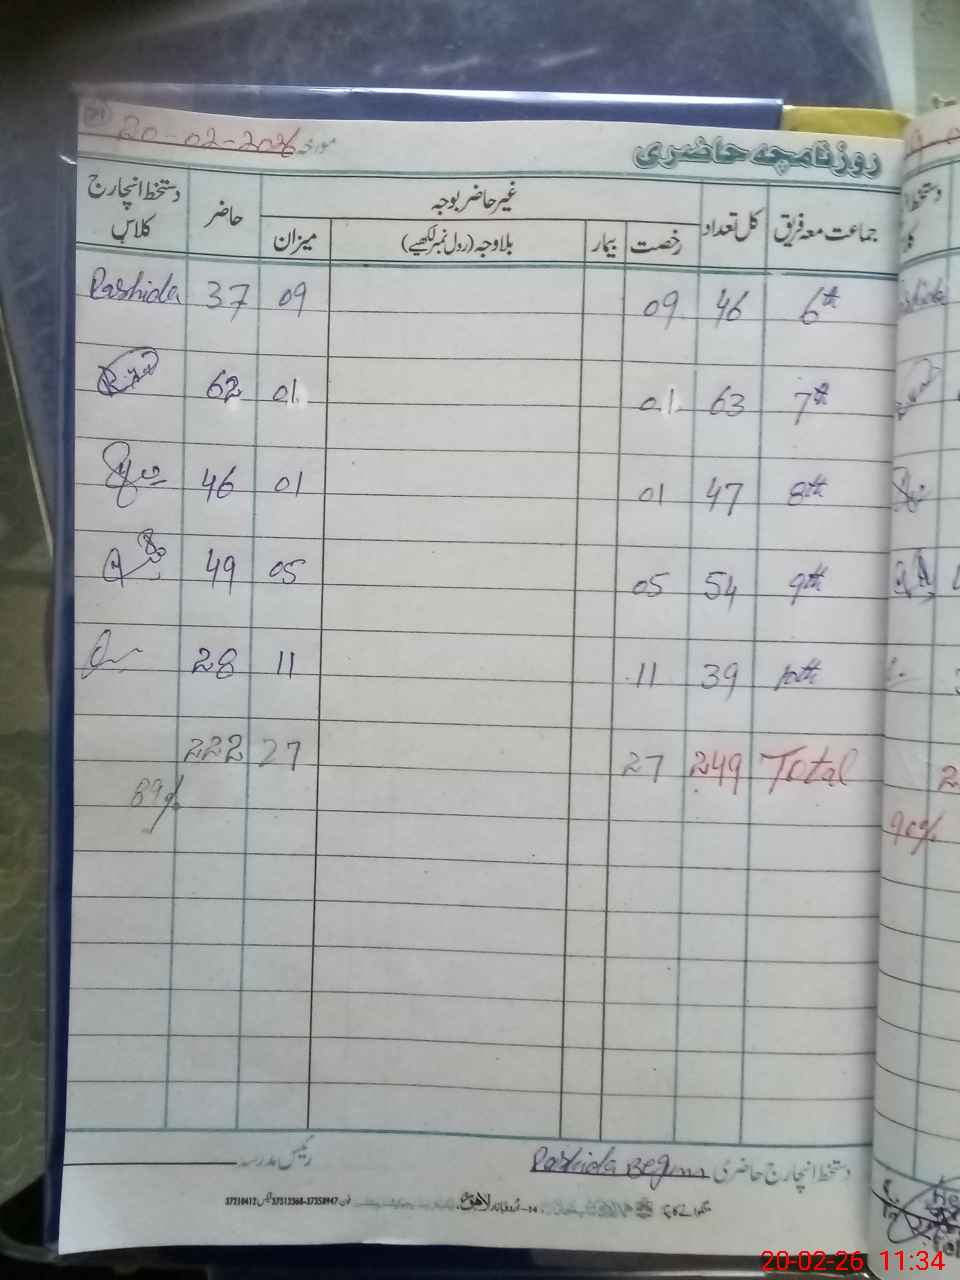 20-02-2026 مورخہ
روزنامچہ حاضری
جماعت معہ فریق کل تعداد غیر حاضر بوجہ حاضر دستخط انچارج کلاس
رخصت بیمار بلاوجہ (رول نمبر لکھیے) میزان
6th 46 09 09 37 Rashida
7th 63 01 01 62
8th 47 01 01 46
9th 54 05 05 49
10th 39 11 11 28
Total 249 27 27 222
89%
90%
دستخط انچارج حاضری Rashida Begum رئیس مدرسہ
لاہور فون 37358947-37312368 فیکس 37210412
20-02-26 11:34